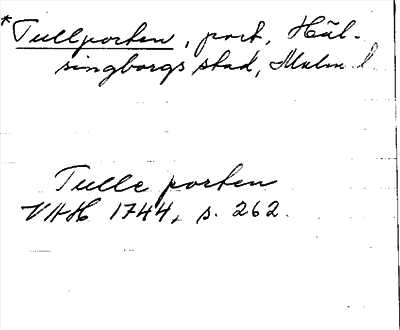 *Tullporten, port, Häl-
singborgs stad, Malm. l.
Tulle porten
VHH 1744, s. 262.